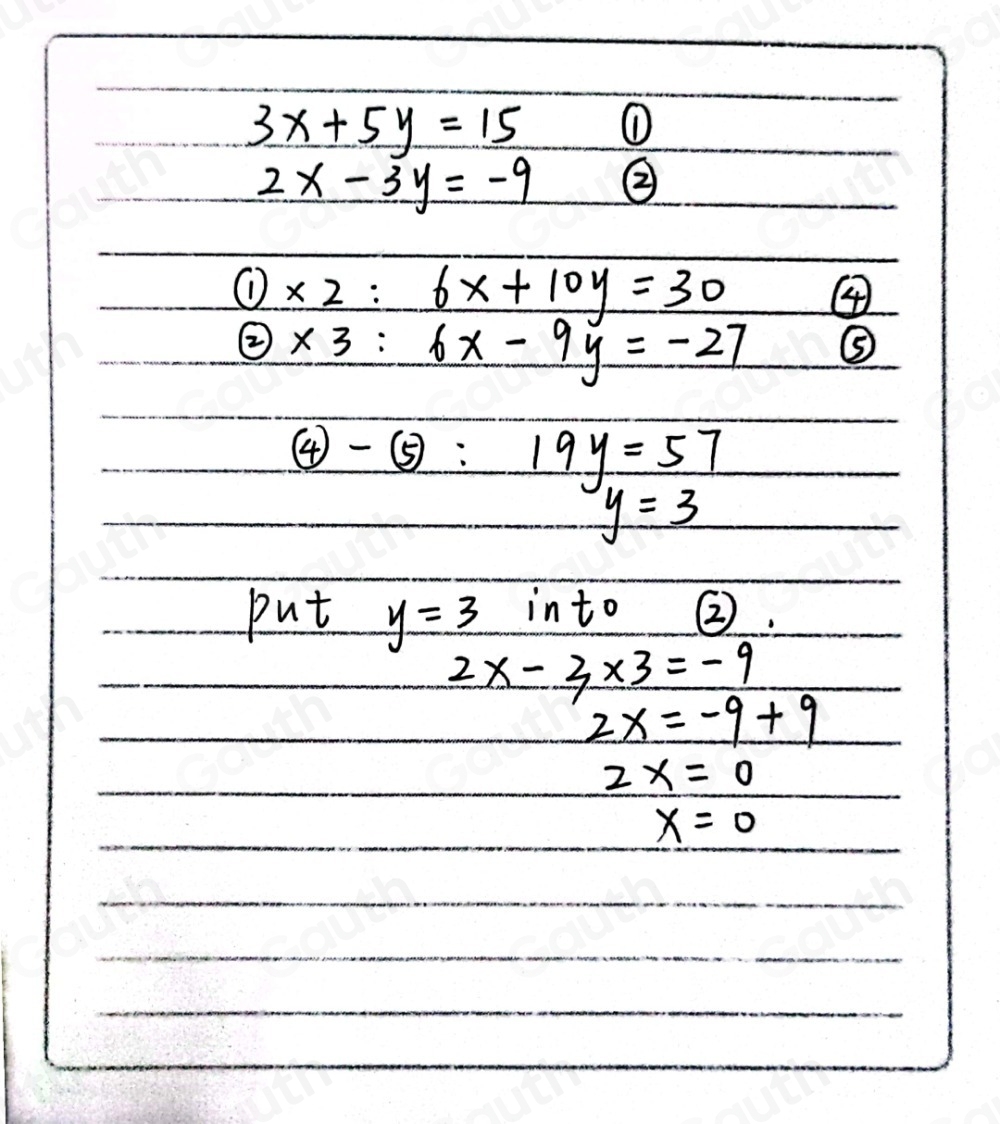 3x+5y=15 ①
2x-3y=-9 ②
①×2: 6x+10y=30 ④
②×3: 6x-9y=-27 ⑤
④-⑤: 19y=57
y=3
put y=3 into ②.
2x-3×3=-9
2x=-9+9
2x=0
x=0
Gauth